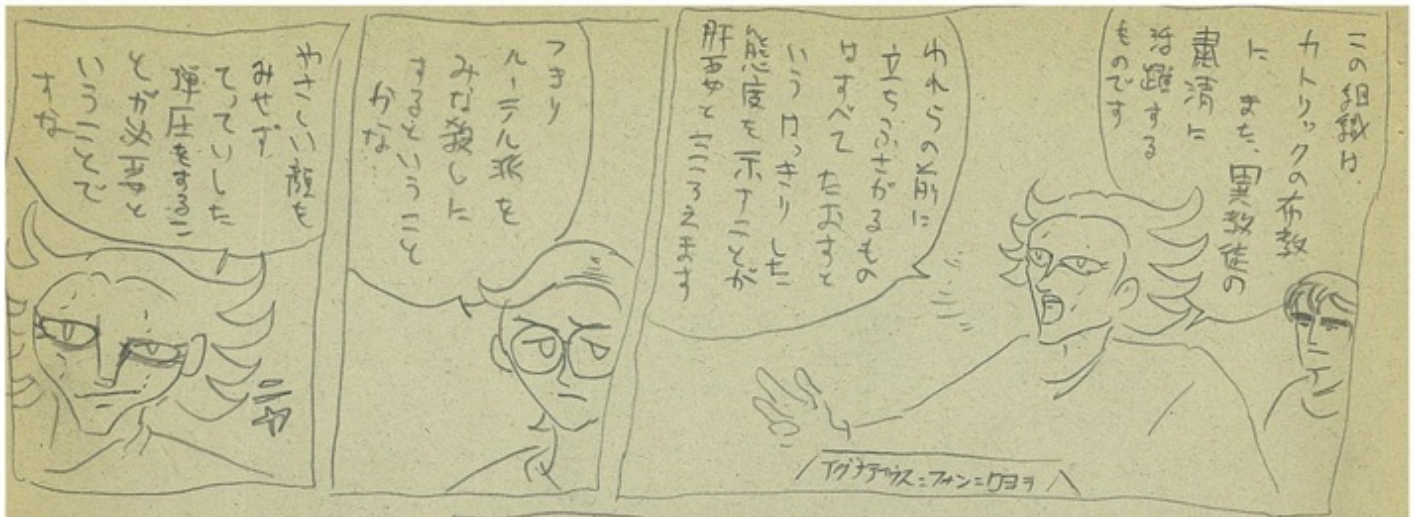 この組織は
カトリックの布教
に また、異教徒の
粛清に
活躍する
ものです
われらの前に
立ちふさがるもの
はすべて たおすと
いう はっきりした
態度を示すことが
肝要と こころえます
つまり
ルーテル派を
みな殺しに
するということ
かな
やさしい顔を
みせず
てっていした
弾圧をするこ
とが必要と
いうことで
すな
ニヤ
イグナティウス=フォン=ロヨラ